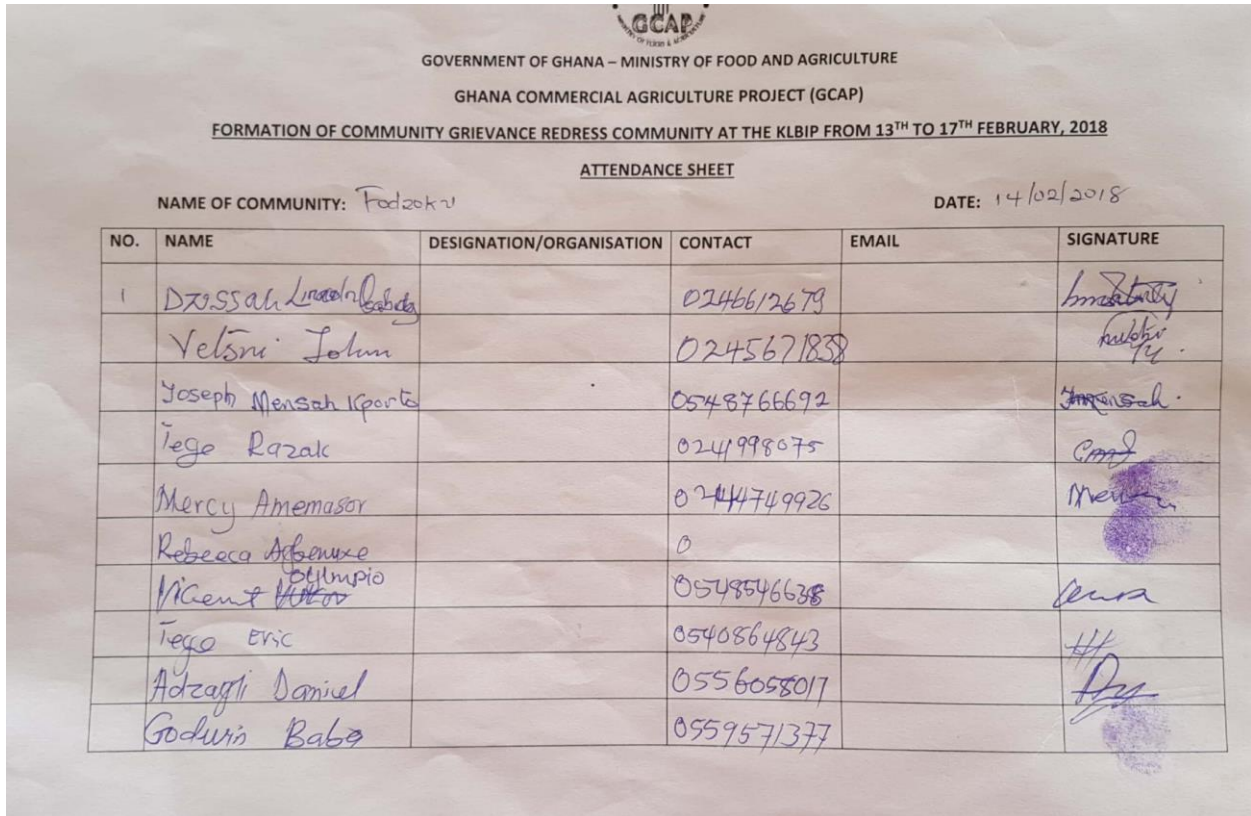 GCAP
GOVERNMENT OF GHANA – MINISTRY OF FOOD AND AGRICULTURE
GHANA COMMERCIAL AGRICULTURE PROJECT (GCAP)
FORMATION OF COMMUNITY GRIEVANCE REDRESS COMMUNITY AT THE KLBIP FROM 13TH TO 17TH FEBRUARY, 2018
ATTENDANCE SHEET
NAME OF COMMUNITY: Fodzoku DATE: 14/02/2018
NO. NAME DESIGNATION/ORGANISATION CONTACT EMAIL SIGNATURE
1 Dzossah Lincoln 0246612679
John 0245671838
Joseph Mensah Kporto 0548766692
Tege Razak 0241998075
Mercy Amemasor 0244749926
Rebecca 0
Olympio 0548546638
Tege Eric 0540864843
Adzagli Daniel 0556058017
Godwin Baba 0559571377